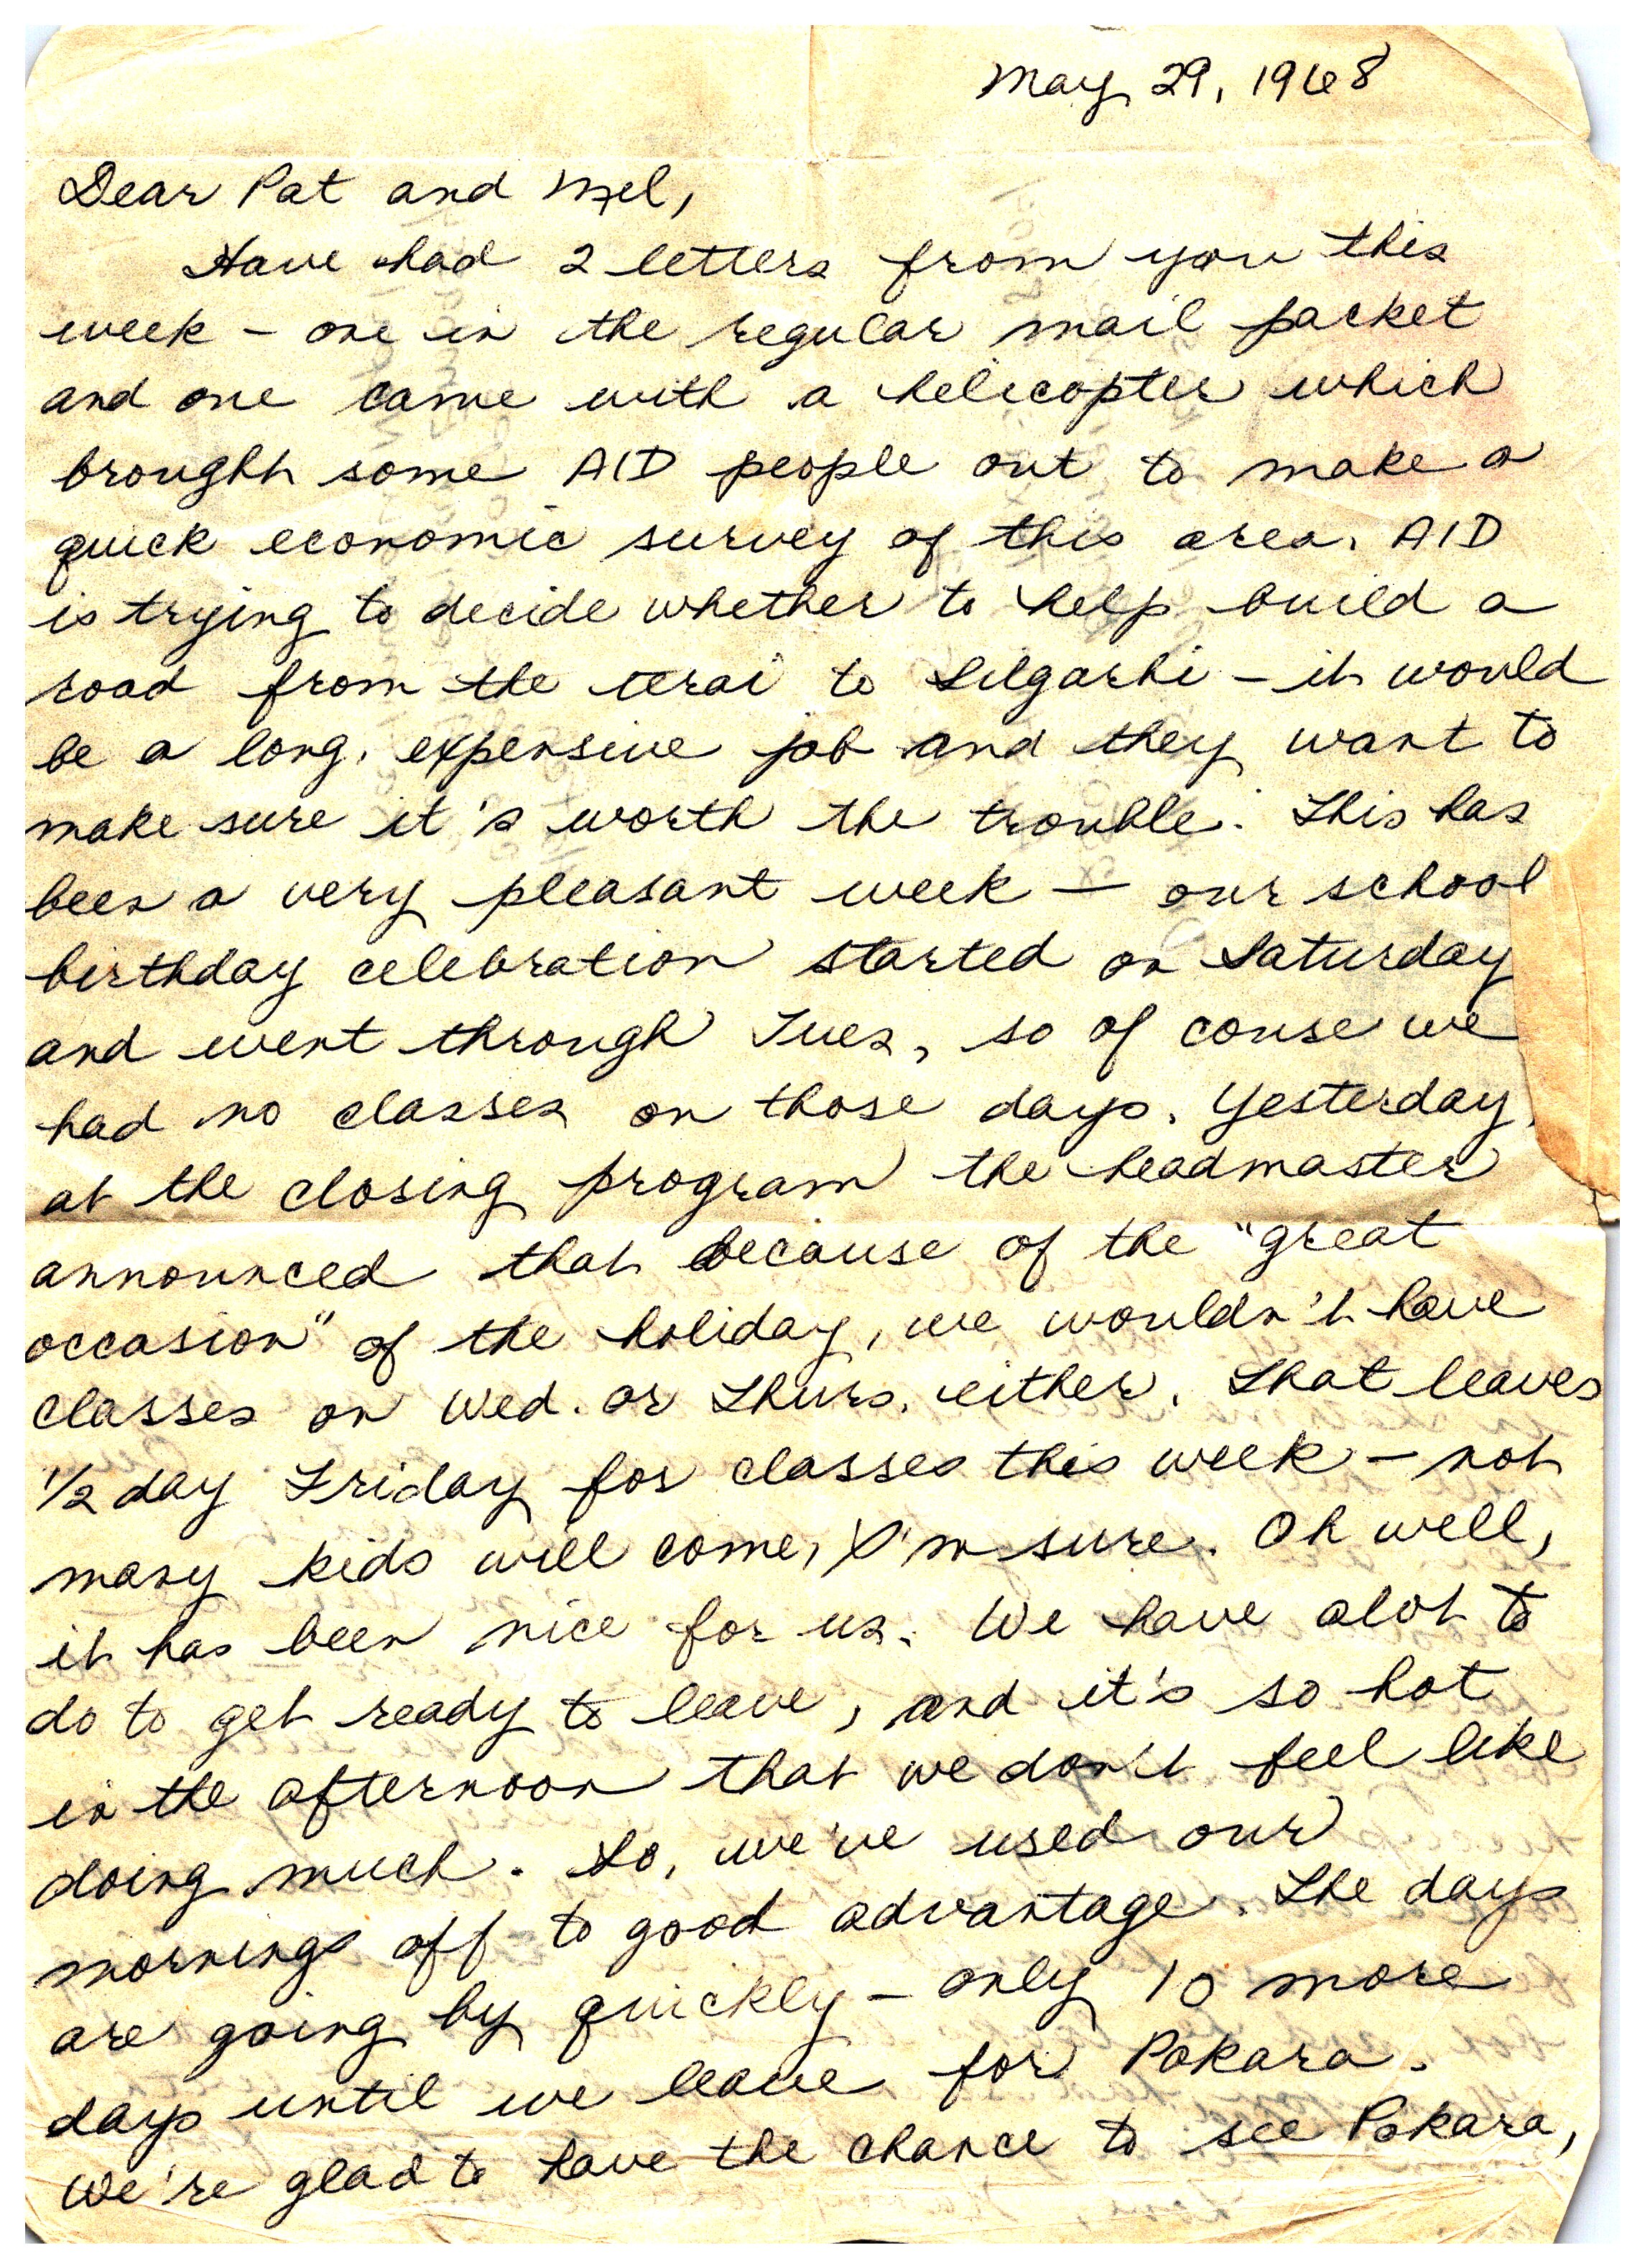 May 29, 1968
Dear Pat and Mel,
Have had 2 letters from you this
week – one in the regular mail packet
and one came with a helicopter which
brought some AID people out to make a
quick economic survey of this area. AID
is trying to decide whether to help build a
road from the terai to Silgarhi – it would
be a long, expensive job and they want to
make sure it's worth the trouble. This has
been a very pleasant week – our school
birthday celebration started on Saturday
and went through Tues, so of couse we
had no classes on those days. Yesterday,
at the closing program the headmaster
announced that because of the "great
occasion" of the holiday, we wouldn't have
classes on Wed. or Thurs. either. That leaves
1/2 day Friday for classes this week – not
many kids will come, I'm sure. Oh well,
it has been nice for us. We have alot to
do to get ready to leave, and it's so hot
in the afternoon that we don't feel like
doing much. So, we've used our
mornings off to good advantage. The days
are going by quickly – only 10 more
days until we leave for Pokara.
We're glad to have the chance to see Pokara,